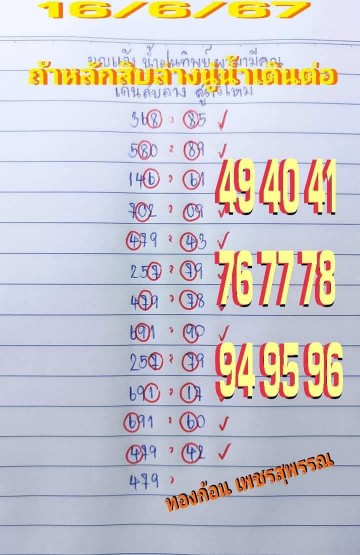 16/6/67
บุญแจ้ง น้ำฝนทิพย์
ถ้าหลักสิบล่างนู๋น้ำเดินต่อ
เดินสิบล่าง สูตรใหม่
368 : 85 ✓
580 : 89
146 : 61
702 : 09
479 : 43 ✓
257 : 79
479 : 78
691 : 90
257 : 79
691 : 17
691 : 60 ✓
479 : 42 ✓
479 :
49 40 41
76 77 78
94 95 96
ทองก้อน เพชรสุพรรณ